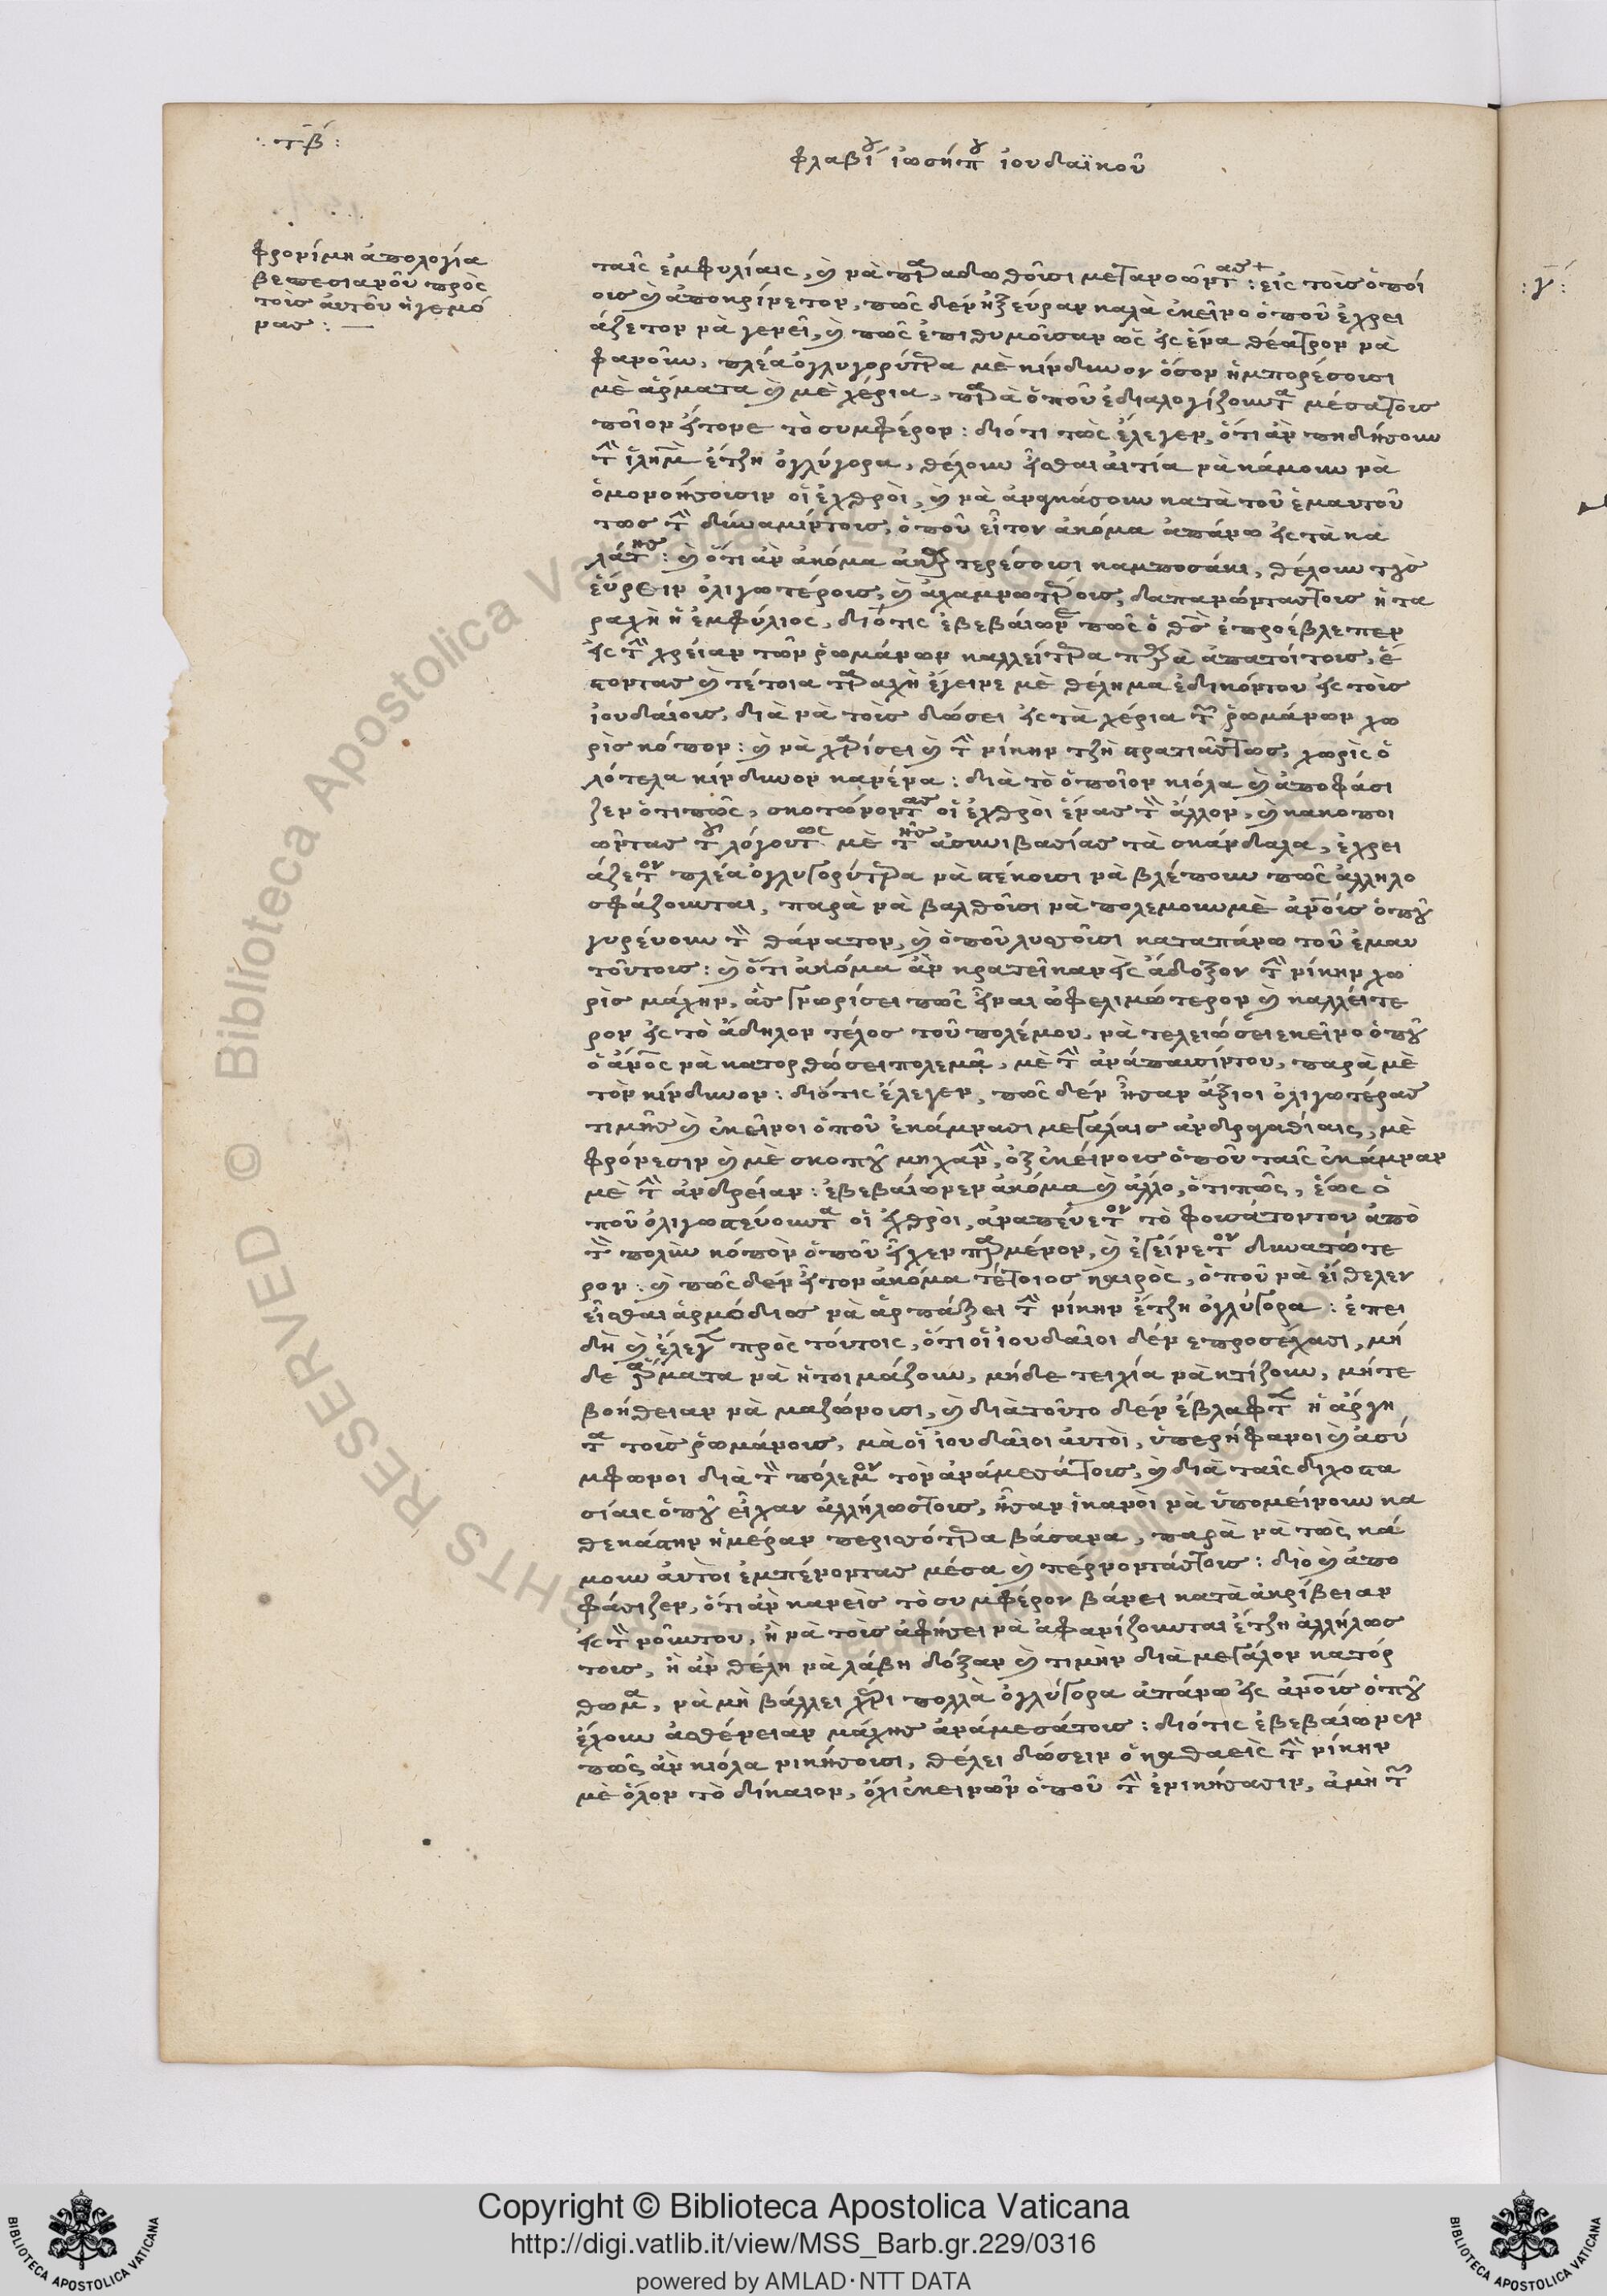 : τβ :
φλαβίου ἰωσήπου ἰουδαϊκοῦ
φρονίμη ἀπολογία
βεπεσιανοῦ πρὸς
τοὺς αὐτοῦ ἡγεμό
νας : —
: γ :
ταῖς ἐμφυλίαις, καὶ νὰ παραδωθοῦσι μετανοῶντας + : εἰς τοὺς ὁποί
ους καὶ ἀποκρίνετον, πῶς δὲν ἠξεύραν καλὰ ἐκεῖνο ὁποῦ ἐχρει
άζετον νὰ γενεῖ, καὶ πῶς ἐπιθυμοῦσαν ὡς εἰς ἕνα θέατρον νὰ
φανοῦν, πλέα ὀγλυγορύτερα μὲ κίνδυνον ὅσον ἠμπορέσουσι
μὲ ἅρματα καὶ μὲ χέρια, παρὰ ὁποῦ ἐδιαλογίζουνταν μέσα τους
ποῖον ἦτονε τὸ συμφέρον : διότι τῶς ἔλεγεν, ὅτι ἂν πηδήσουν
τὴν ἱλὴμ ἔτζη ὀγλύγορα, θέλουν εἶσθαι αἰτία νὰ κάμουν νὰ
ὁμονοήσουσιν οἱ ἐχθροὶ, καὶ νὰ ἀρχινάσουν κατὰ τοῦ ἐμαυτοῦ
τως τὴν δύναμίν τους, ὁποῦ εἶτον ἀκόμα ἀπάνω εἰς τὰ κα
λά της : καὶ ὅτι ἂν ἀκόμα ἀκαρτερέσουσι καμποσάκι, θέλουν τοὺς
εὕρειν ὀλιγωτέρους, καὶ ἀχαμνωτέρους, δαπανώντας τους ἡ τα
ραχὴ ἡ ἐμφύλιος, διότις ἐβεβαίωνε πῶς ὁ θεὸς ἐπροέβλεπεν
εἰς τὴν χρείαν τῶν ῥωμάνων καλλείτερα παρὰ ἀπατοί τους, ἔ
ποντας καὶ τέτοια ταραχὴ ἔγειρε μὲ θέλημα ἐδικόντου εἰς τοὺς
ἰουδαίους, διὰ νὰ τοὺς δώσει εἰς τὰ χέρια τῶν ῥωμάνων χω
ρὶς κόπον : καὶ νὰ χαρίσει καὶ τὴν νίκην τζῆ στρατιᾶς τως, χωρὶς ὁ
λότελα κίνδυνον κανένα : διὰ τὸ ὁποῖον κιόλα καὶ ἀποφάσι
ζεν ὅτι πῶς, σκοτώνοντας οἱ ἐχθροὶ ἕνας τὸν ἄλλον, καὶ κακοποι
ῶντας τοῦ λόγου τως μὲ τῆς ἀσυιβασίας τὰ σκάνδαλα, ἐχρει
άζετον πλέα ὀγλυγορύτερα νὰ στέκουσι νὰ βλέπουν πῶς ἀλληλο
σφάζουνται, παρὰ νὰ βαλθοῦσι νὰ πολεμοῦν μὲ ἀνθρώπους ὁποῦ
γυρεύουν τὸν θάνατον, καὶ ὁποῦ λυσσοῦσι καταπάνω τοῦ ἐμαυ
τοῦντους : καὶ ὅτι ἀκόμα ἂν κρατεῖ κανεὶς ἄδοξον τὴν νίκην χω
ρὶς μάχην, ἂς γνωρίσει πῶς εἶναι ὠφελιμώτερον καὶ καλλείτε
ρον εἰς τὸ ἄδηλον τέλος τοῦ πολέμου, νὰ τελειώσει ἐκεῖνο ὁποῦ
ὁ ἄνθρωπος νὰ κατορθώσει πολεμᾶ, μὲ τὴν ἀνάπαυσίν του, παρὰ μὲ
τὸν κίνδυνον : διότις ἔλεγεν, πῶς δὲν ἦσαν ἄξιοι ὀλιγωτέρας
τιμῆς καὶ ἐκεῖνοι ὁποῦ ἐκάμνασι μεγάλαις ἀνδραγαθίαις, μὲ
φρόνεσιν καὶ μὲ σκοποῦ μηχανὴν, ὀξ ἐκείνους ὁποῦ ταῖς ἐκάμναν
μὲ τὴν ἀνδρείαν : ἐβεβαίωνεν ἀκόμα καὶ ἄλλο, ὅτι πῶς, ἕως ὁ
ποῦ ὀλιγωστεύουνταν οἱ ἐχθροὶ, ἀναπεύετον τὸ φουσάτοντου ἀπὸ
τὸν πολὺν κόπον ὁποῦ εἶχεν παρμένον, καὶ ἐγείρετον δυνατώτε
ρον : καὶ πῶς δὲν ἦτον ἀκόμα τέτοιος καιρὸς, ὁποῦ νὰ εἴθελεν
εἶσθαι ἁρμόδιας νὰ ἁρπάξει τὴν νίκην ἔτζη ὀγλύγορα : ἐπει
δὴ καὶ ἔλεγεν πρὸς τούτοις, ὅτι οἱ ἰουδαῖοι δὲν επροσέχασι, μή
δε ἅρματα νὰ ἡτοιμάζουν, μήδε τειχία νὰ κτίζουν, μήτε
βοήθειαν νὰ μαζώνουσι, καὶ διὰ τοῦτο δὲν ἔβλαφτεν ἡ ἀργη
τα τοὺς ῥωμάνους, μὰ οἱ ἰουδαῖοι ἀυτοὶ, ὑπερήφανοι καὶ ἀσύ
μφωνοι διὰ τὸν πόλεμον τὸν ἀνάμεσά τους, καὶ διὰ ταῖς διχοστα
σίαις ὁποῦ εἶχαν ἀλλήλως τους, ἦσαν ἱκανοὶ νὰ ὑπομείνουν κα
θεκάστην ἡμέραν περισσότερα βάσανα, παρὰ νὰ τῶς κά
μουν ἀυτοὶ ἐμπένοντας μέσα καὶ πέρνοντάς τους : διὸ καὶ ἀπο
φάσιζεν, ὅτι ἂν κανεὶς τὸ συμφέρον βάνει κατὰ ἀκρίβειαν
εἰς τὸν νοῦν του, ἢ νὰ τοὺς ἀφήσει νὰ ἀφανίζουνται ἔτζη ἀλλήλως
τους, ἢ ἂν θέλη νὰ λάβη δόξαν καὶ τιμὴν διὰ μεγάλον κατόρ
θωμα, νὰ μὴ βάλλει χέρι πολλὰ ὀγλύγορα ἀπάνω εἰς ἀνθρώπους ὁποῦ
ἔχουν ἀσθένειαν μάχης ἀνάμεσάτους : διότις ἐβεβαίωνεν
πῶς ἂν κιόλα νικήσουσι, θέλει δώσειν ὁ καθαεὶς τὴν νίκην
μὲ ὅλον τὸ δίκαιον, ὄχι ἐκεινῶν ὁποῦ τὴν ἐνικήσασιν, ἀμὴ τῶν
Copyright © Biblioteca Apostolica Vaticana
http://digi.vatlib.it/view/MSS_Barb.gr.229/0316
powered by AMLAD·NTT DATA